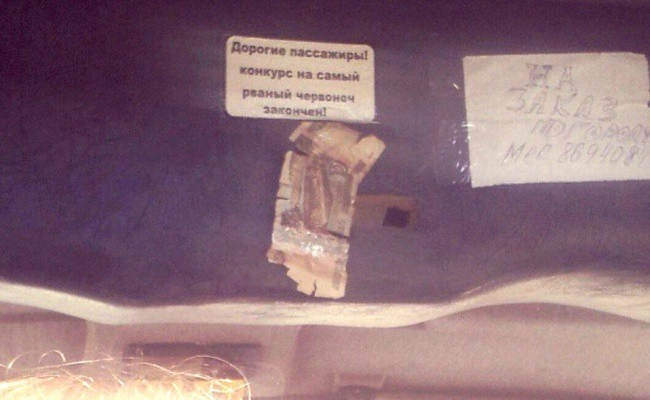 Дорогие пассажиры!
конкурс на самый
рваный червоноч
закончен!
НА
ЗАКАЗ
ПО ГОРОДУ